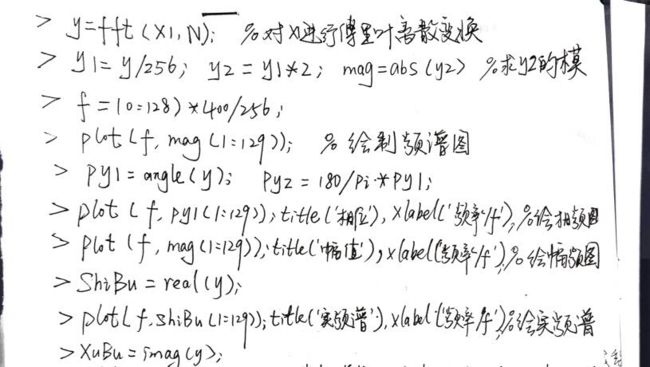 > y=fft(X1,N); %对X进行傅里叶离散变换
> y1=y/256; y2=y1*2; mag=abs(y2) %求y2的模
> f=(0:128)*400/256;
> plot(f,mag(1:129)); %绘制频谱图
> py1=angle(y); py2=180/pi*py1;
> plot(f,py1(1:129));title('相位'),xlabel('频率/f'),%绘相频图
> plot(f,mag(1:129));title('幅值'),xlabel('频率/f'),%绘幅频图
> ShiBu=real(y);
> plot(f,ShiBu(1:129));title('实频谱'),xlabel('频率/f'),%绘实频谱
> XuBu=imag(y);